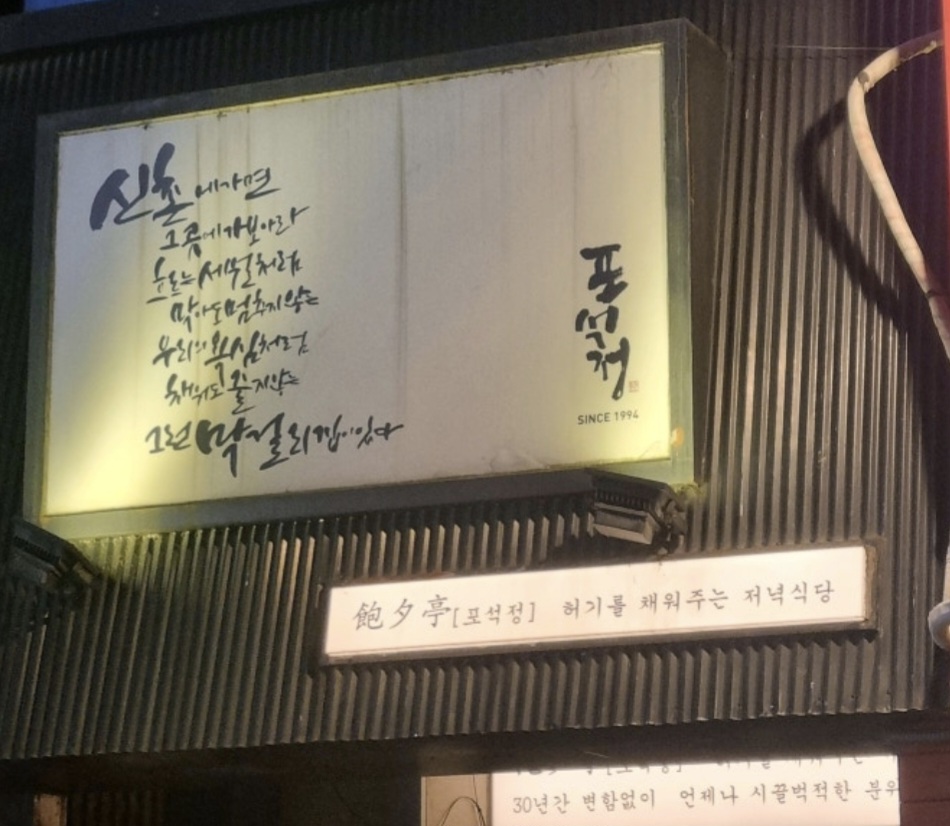 신촌에가면
그곳에가보아라
흐르는세월처럼
막아도멈추지않는
우리의욕심처럼
채워도줄지않는
그런막걸리집이있다
포석정
SINCE 1994
飽夕亭[포석정] 허기를 채워주는 저녁식당
30년간 변함없이 언제나 시끌벅적한 분위